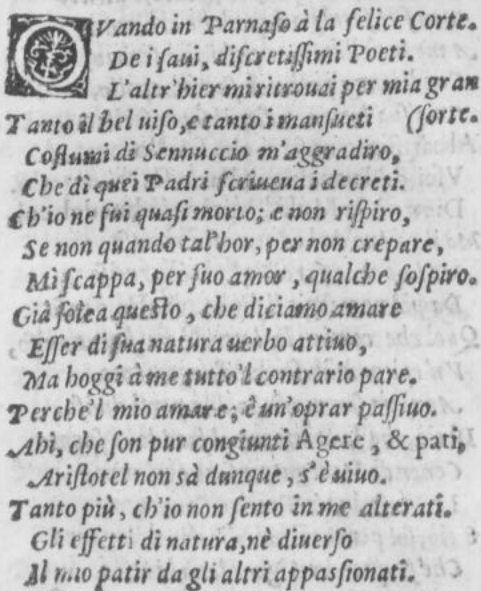 QVando in Parnaſo à la felice Corte.
De i ſaui, diſcretiſſimi Poeti.
L'altr'hier mi ritrouai per mia gran
Tanto il bel uiſo, e tanto i manſueti (ſorte.
Coſtumi di Sennuccio m'aggradiro,
Che di quei Padri ſcriueua i decreti.
Ch'io ne fui quaſi morto; e non riſpiro,
Se non quando tal'hor, per non crepare,
Mi ſcappa, per ſuo amor, qualche ſoſpiro.
Già ſolea queſto, che diciamo amare
Eſſer di ſua natura uerbo attiuo,
Ma hoggi à me tutto'l contrario pare.
Perche'l mio amare; è un'oprar paſſiuo.
Ahi, che ſon pur congiunti Agere, & pati,
Ariſtotel non sà dunque, s'è uiuo.
Tanto più, ch'io non ſento in me alterati.
Gli effetti di natura, nè diuerſo
Al mio patir da gli altri appaſſionati.